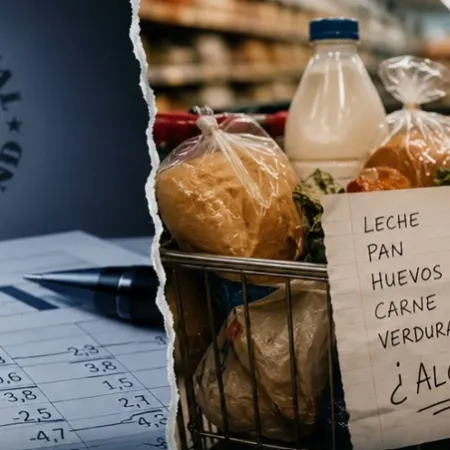 AL
ND
2,3
3,8
3,8 1,5
-2,5 2,7
-4,7
LECHE
PAN
HUEVOS
CARNE
VERDURA
¿AL